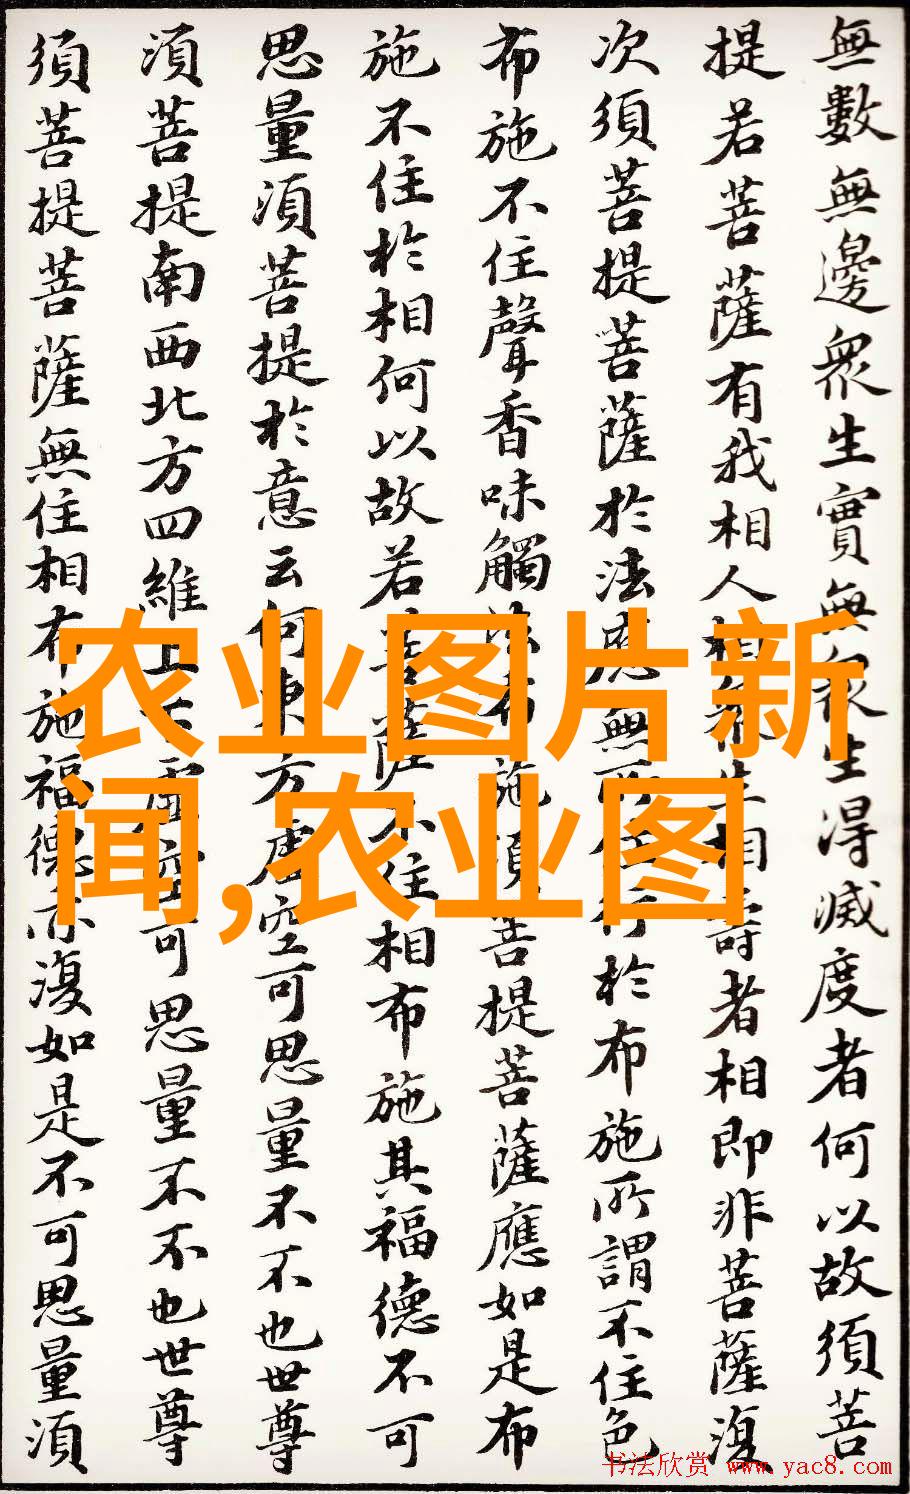 無數無邊衆生實無衆生得滅度者何以故須菩
提若菩薩有我相人相衆生相壽者相即非菩薩復
次須菩提菩薩於法應無所住行於布施所謂不住色
布施不住聲香味觸法布施須菩提菩薩應如是布
施不住於相何以故若菩薩不住相布施其福德不可
思量須菩提於意云何東方虛空可思量不不也世尊
須菩提南西北方四維上下虛空可思量不不也世尊
須菩提菩薩無住相布施福德亦復如是不可思量須
农业图片新
闻,农业图
书法欣赏 www.yac8.com